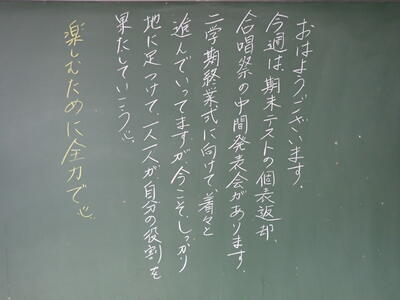 おはようございます。
今週は、期末テストの個表返却、
合唱祭の中間発表会があります。
二学期終業式に向けて、着々と
進んでいってますが、今こそ、しっかり
地に足つけて、一人一人が自分の役割を
果たしていこう
楽しむために全力で